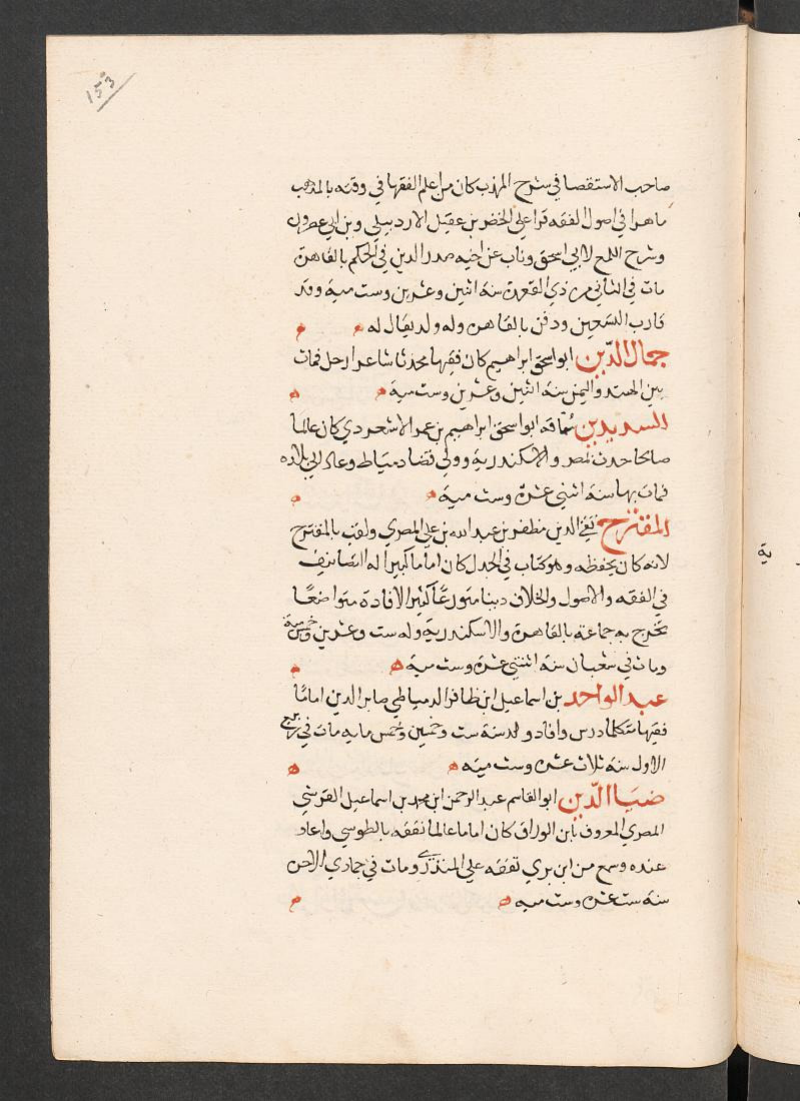 153
صاحب الاستقصا في شرح المهذب كان من اعلم الفقها في وقته بالمذهب
ماهرا في اصول الفقه قرا علي الخضر بن عقيل الاردبيلي وبن ابي عصرون
وشرح اللمع لابي اسحق وناب عن اخيه صدر الدين في الحكم بالقاهرة
مات في الثاني من ذي القعدة سنة اثنين وعشرين وست مية وقد
قارب التسعين ودفن بالقاهرة وله ولد يقال له
جمال الدين ابو اسحق ابراهيم كان فقيها محدثا شاعرا رحل فمات
بين الهند واليمن سنة اثنين وعشرين وست مية
السديد بن سماقة ابو اسحق ابراهيم بن عمر الاسعردي كان عالما
صالحا حدث بمصر والاسكندرية وولي قضا دمياط وعاد الي بلاده
فمات بها سنة اثنتي عشرة وست مية
المقترح تقي الدين مظفر بن عبد الله بن علي المصري ولقب بالمقترح
لانه كان يحفظه وهو كتاب في الجدل كان اماما كبيرا له التصانيف
في الفقه والاصول والخلاف دينا متورعا كثير الافادة متواضعا
تخرج به جماعة بالقاهرة والاسكندرية وله ست وعشرين وخمس مية
ومات في شعبان سنة اثنتي عشرة وست مية
عبد الواحد بن اسماعيل ابن ظافر الدمياطي صابر الدين اماما
فقيها متكلما درس وافاد ولد سنة ست وخمسين وخمس مايه مات في ربيع
الاول سنة ثلاث عشرة وست مية
ضيا الدين ابو القاسم عبد الرحمن ابن محمد بن اسماعيل القرشي
المصري المعروف بابن الوراق كان اماما عالما تفقه بالطوسي واعاد
عنده وسمع من ابن بري تفقه علي المنذري ومات في جمادي الاخرة
سنة ست عشرة وست مية